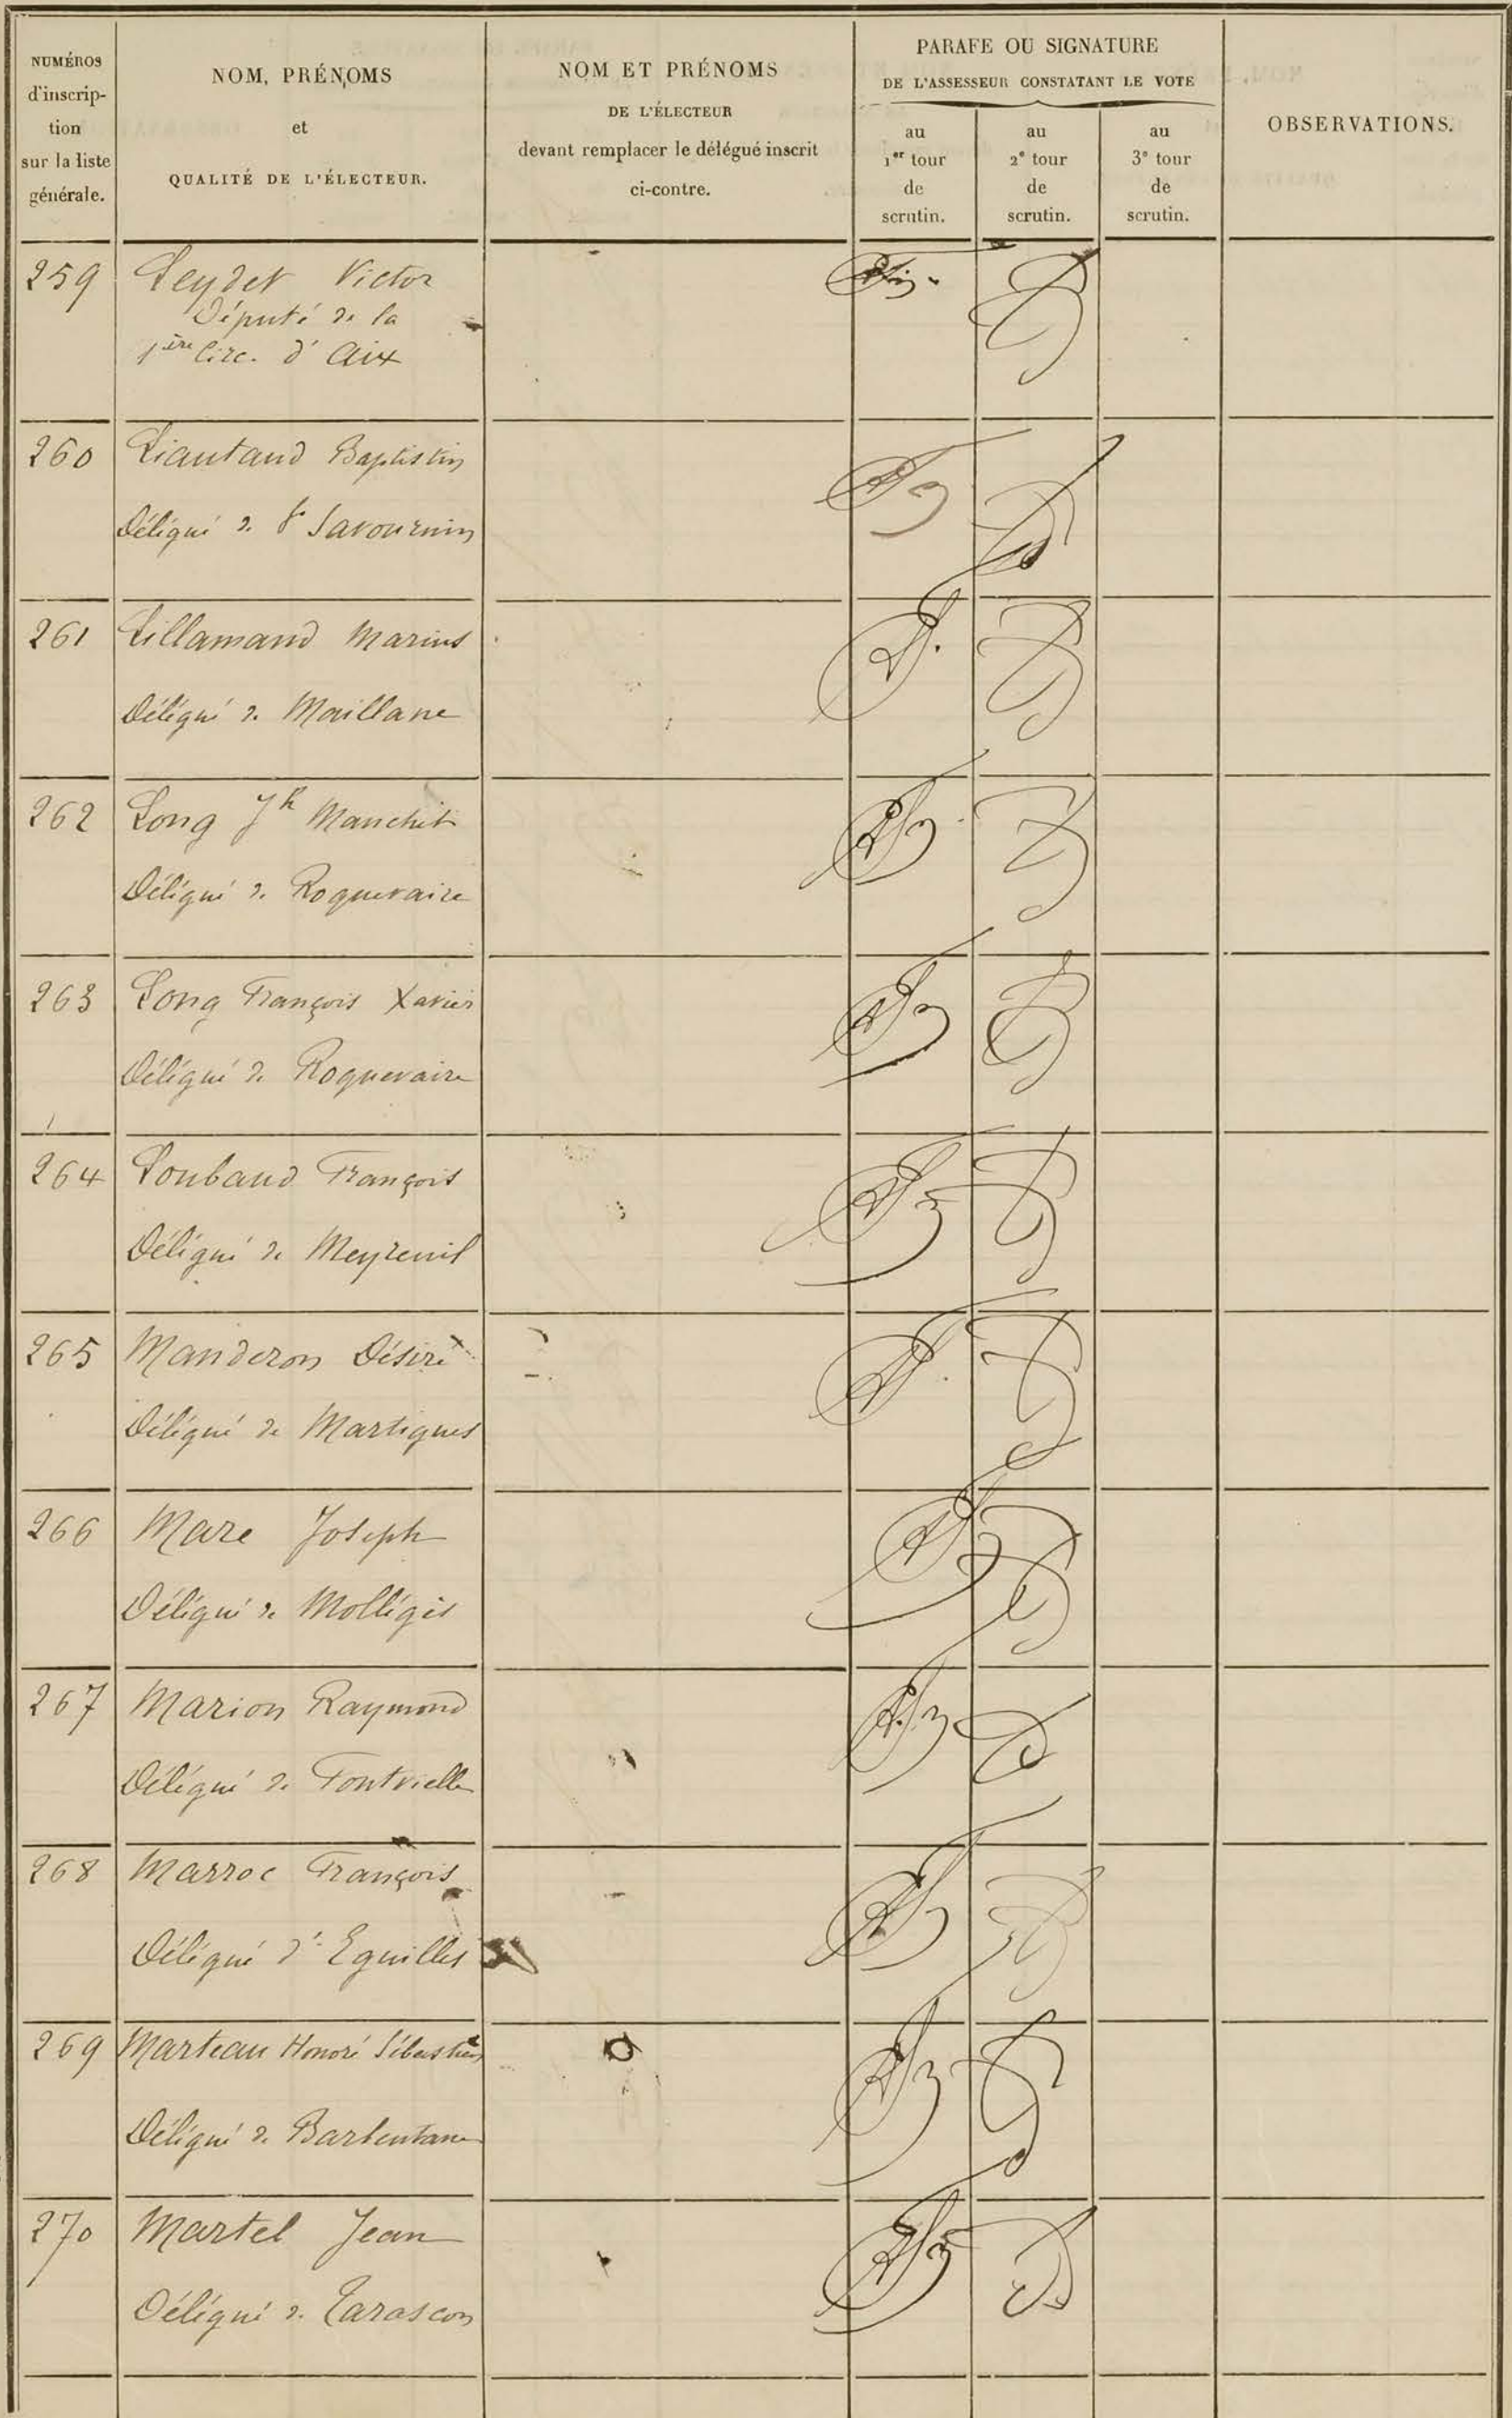 NUMÉROS
d'inscrip-
tion
sur la liste
générale.
NOM, PRÉNOMS
et
QUALITÉ DE L'ÉLECTEUR.
NOM ET PRÉNOMS
DE L'ÉLECTEUR
devant remplacer le délégué inscrit
ci-contre.
PARAFE OU SIGNATURE
DE L'ASSESSEUR CONSTATANT LE VOTE
au
1er tour
de
scrutin.
au
2e tour
de
scrutin.
au
3e tour
de
scrutin.
OBSERVATIONS.
259 Leydet Victor
Député de la
1ère Circ. d'Aix
260 Liautaud Baptistin
Délégué de St Savournin
261 Lillamand Marius
Délégué de Maillane
262 Long Jh
Délégué de Roquevaire
263 Long François Xavier
Délégué de Roquevaire
264 Loubaud François
Délégué de Meyreuil
265 Manderon Désiré
Délégué de Martigues
266 Mare Joseph
Délégué de Mollégès
267 Marion Raymond
Délégué de Fontvielle
268 Marroc François
Délégué d'Eguilles
269 Marteau Honoré Sébastien
Délégué de Barbentane
270 Martel Jean
Délégué de Tarascon